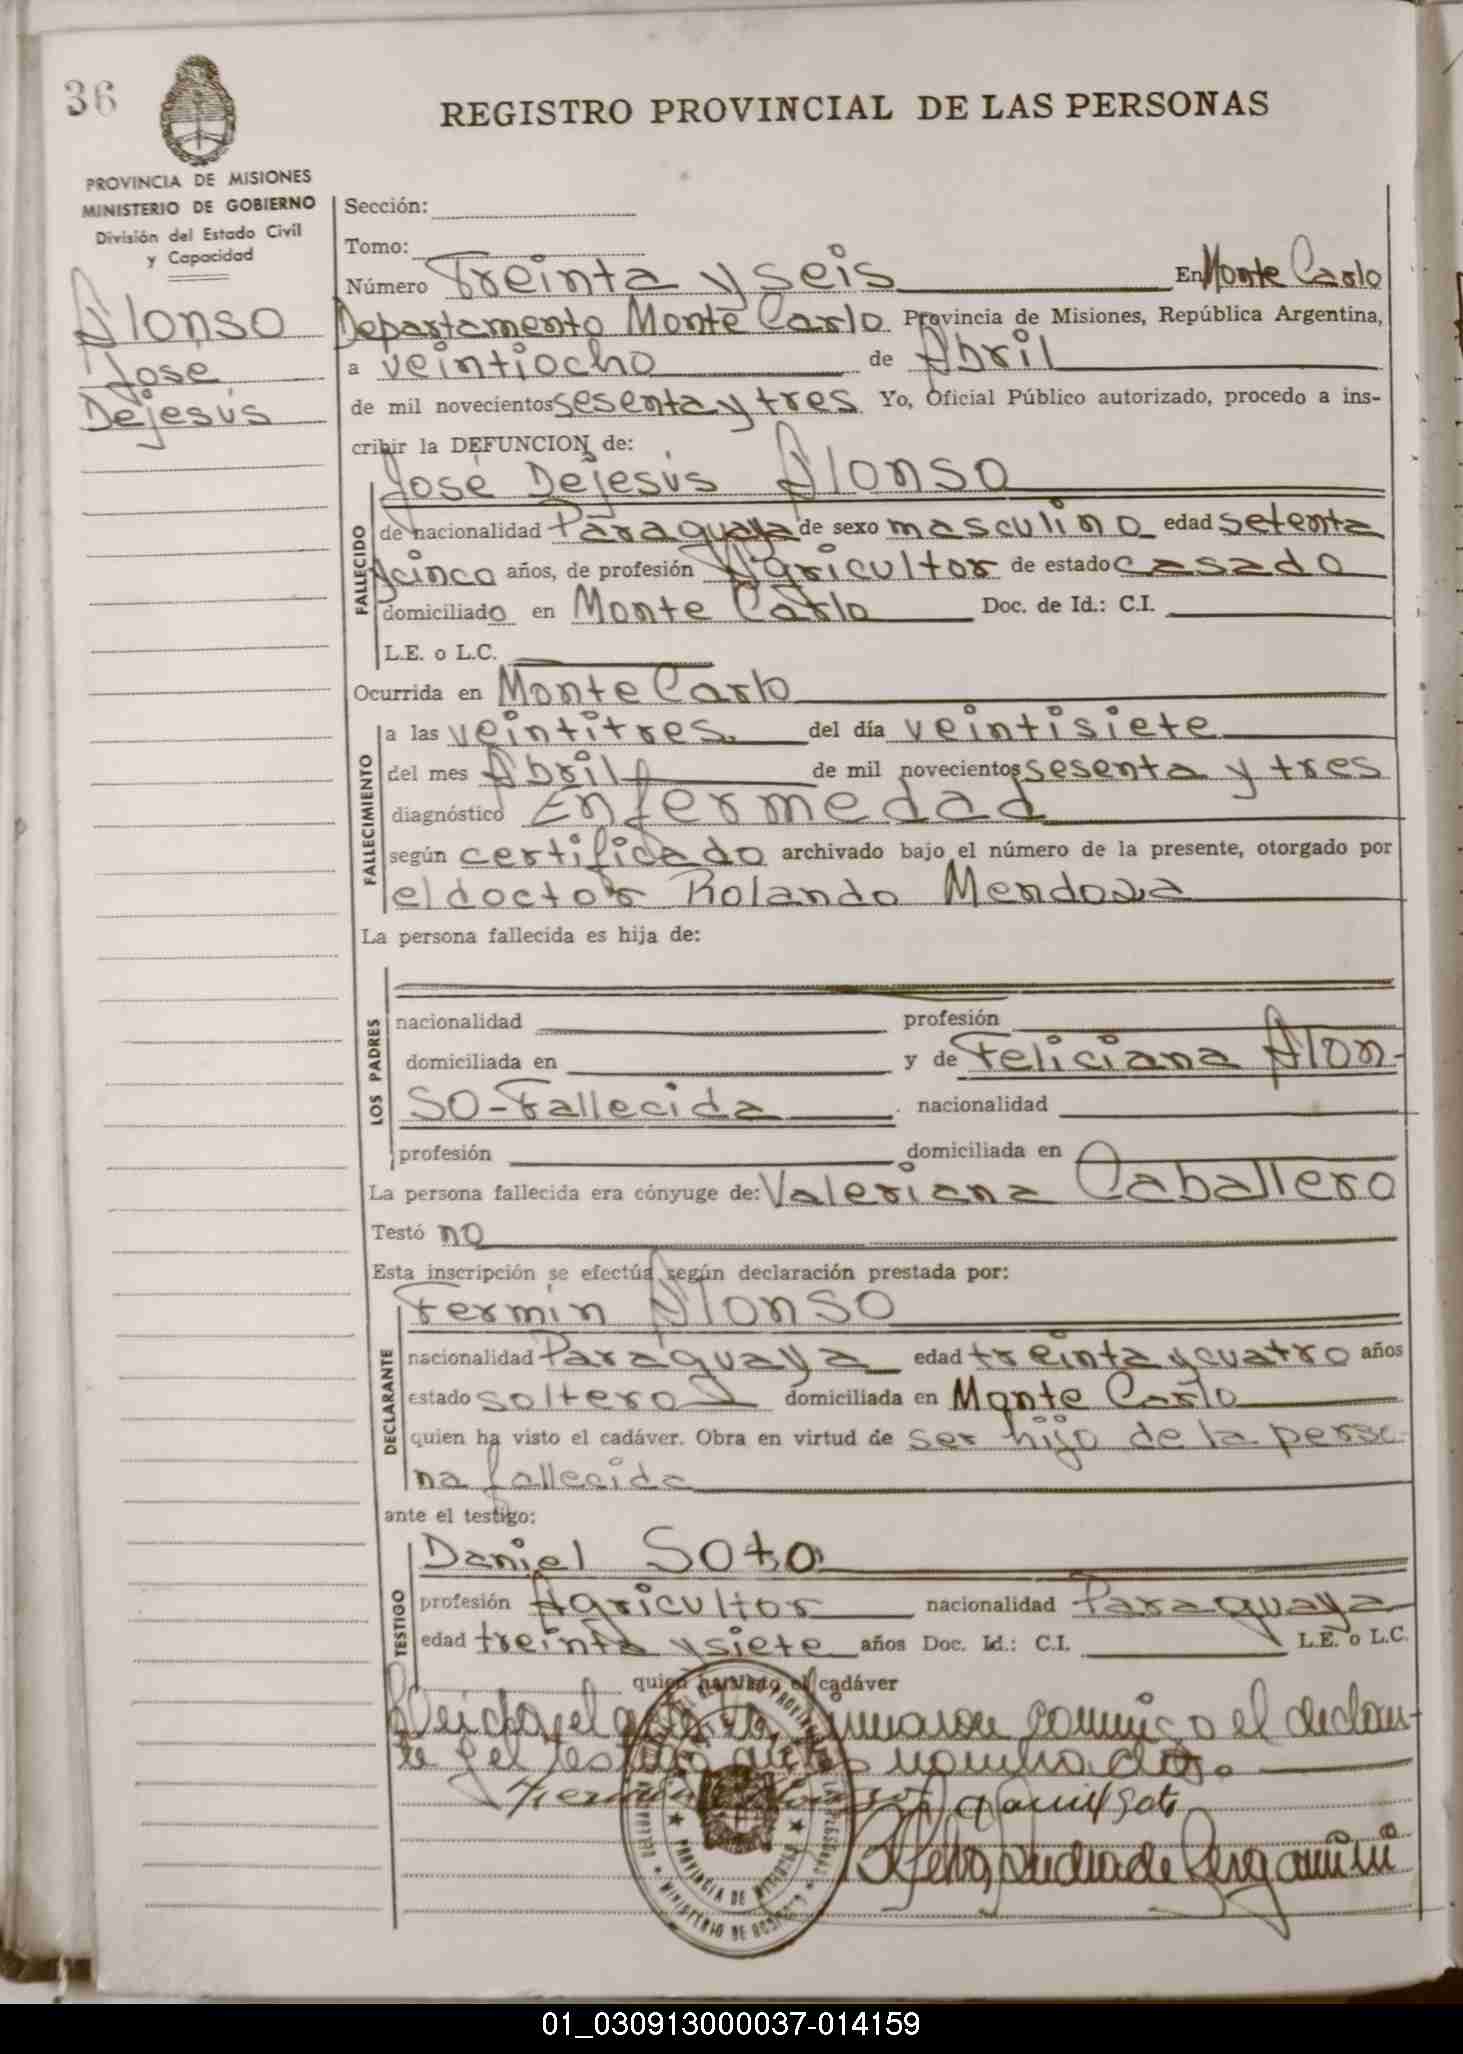 36
REGISTRO PROVINCIAL DE LAS PERSONAS
PROVINCIA DE MISIONES
MINISTERIO DE GOBIERNO
División del Estado Civil
y Capacidad
Alonso
José
Dejesús
Sección:
Tomo:
Número Treinta y seis En Monte Carlo
Departamento Monte Carlo Provincia de Misiones, República Argentina,
a veintiocho de Abril
de mil novecientos sesenta y tres Yo, Oficial Público autorizado, procedo a ins-
cribir la DEFUNCION de:
José Dejesús Alonso
FALLECIDO
de nacionalidad Paraguaya de sexo masculino edad setenta
y cinco años, de profesión Agricultor de estado casado
domiciliado en Monte Carlo Doc. de Id.: C.I.
L.E. o L.C.
Ocurrida en Monte Carlo
FALLECIMIENTO
a las veintitres del día veintisiete
del mes Abril de mil novecientos sesenta y tres
diagnóstico Enfermedad
según certificado archivado bajo el número de la presente, otorgado por
el doctor Rolando Mendoza
La persona fallecida es hija de:
LOS PADRES
nacionalidad profesión
domiciliada en y de Feliciana Alon-
so-Fallecida nacionalidad
profesión domiciliada en
La persona fallecida era cónyuge de: Valeriana Caballero
Testó no
Esta inscripción se efectúa según declaración prestada por:
Fermin Alonso
DECLARANTE
nacionalidad Paraguaya edad treinta y cuatro años
estado soltero domiciliada en Monte Carlo
quien ha visto el cadáver. Obra en virtud de ser hijo de la perso-
na fallecida
ante el testigo:
Daniel Soto
TESTIGO
profesión Agricultor nacionalidad Paraguaya
edad treinta y siete años Doc. Id.: C.I. L.E. o L.C.
quien ha visto el cadáver
Leida el acta firmaron conmigo el declaran-
te y el testigo antes nombrados.
Fermin Alonso Daniel Soto
PROVINCIA DE MISIONES
MINISTERIO DE GOBIERNO
01_030913000037-014159